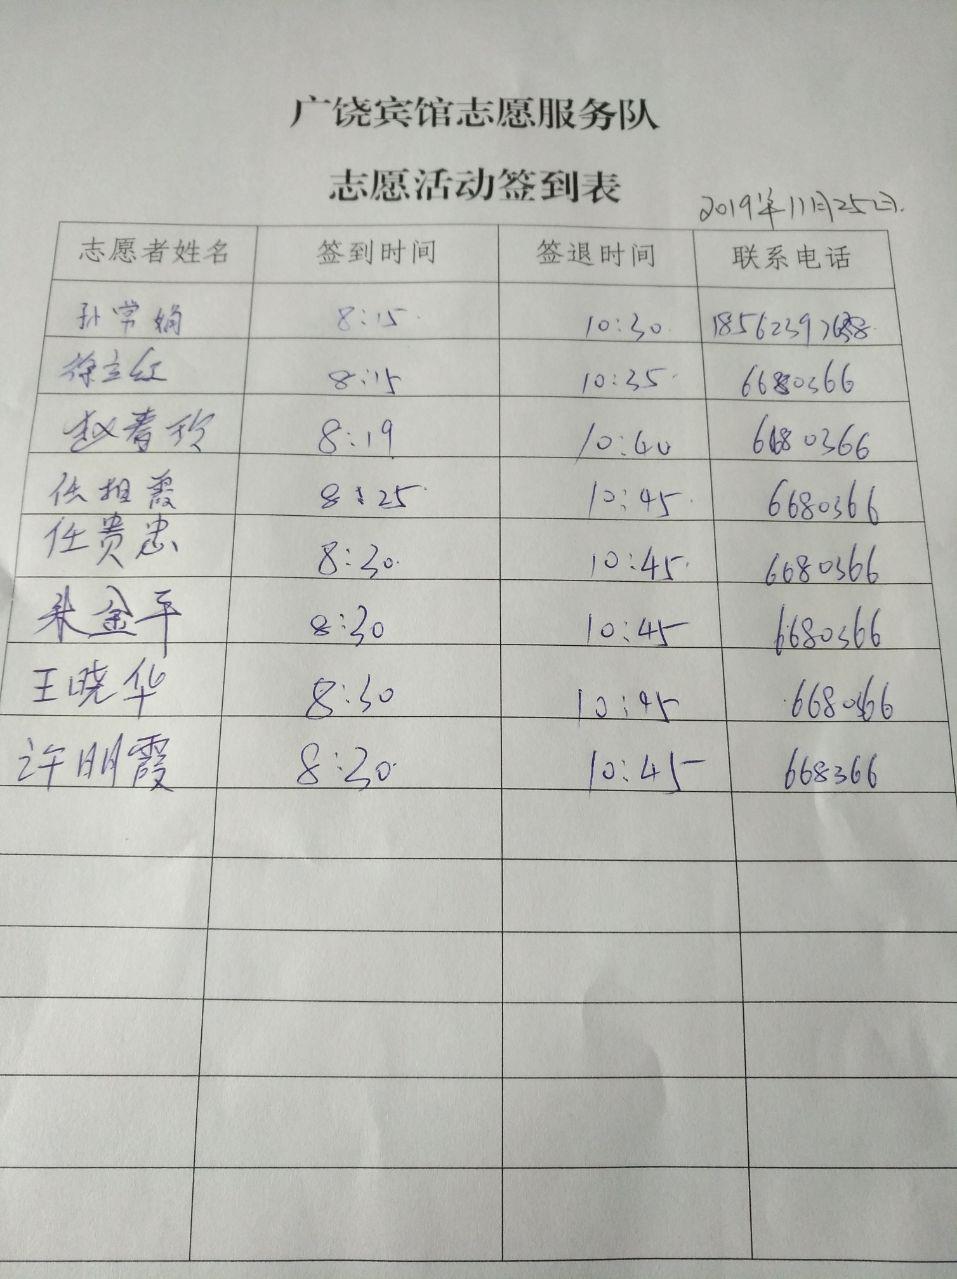 广饶宾馆志愿服务队
志愿活动签到表
2019年11月25日.
志愿者姓名 签到时间 签退时间 联系电话
孙常娟 8:15 10:30
徐立红 8:15 10:35 6680366
赵春玲 8:19 10:40 6680366
任担霞 8:25 10:45 6680366
任贵忠 8:30 10:45 6680366
朱金平 8:30 10:45 6680366
王晓华 8:30 10:45 6680366
许明霞 8:30 10:45 668366